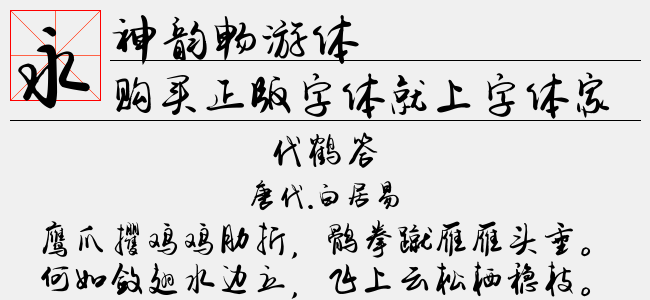 永
神韵畅游体
购买正版字体就上字体家
代鹤答
唐代.白居易
鹰爪攫鸡鸡肋折，鹘拳蹴雁雁头垂。
何如敛翅水边立，飞上云松栖稳枝。